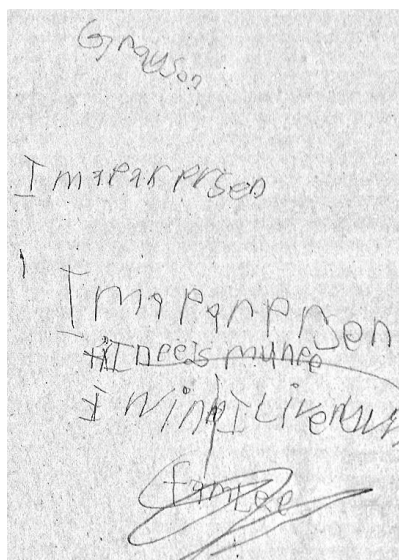 Grayson
Imaparprsen
Imaparprsen
Ineeds munee
I
famlee